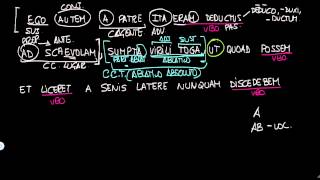 CONG
EGO AUTEM A PATRE ITA ERAM DEDUCTUS
DEDUCO, -DUXI, -DUCTUM
SUS C.AGENTE ADV VBO PAS.
PREP. ANTE. AGT SUST
AD SCAEVOLAM SUMPTA VIRILI TOGA UT QUOAD POSSEM
C.C. LUGAR PART. ABLATIVO VBO
C.C.T. (ABLATIVO ABSOLUTO)
ET LICERET A SENIS LATERE NUNQUAM DISCEDEREM
VBO VBO
A
AB - LOC.